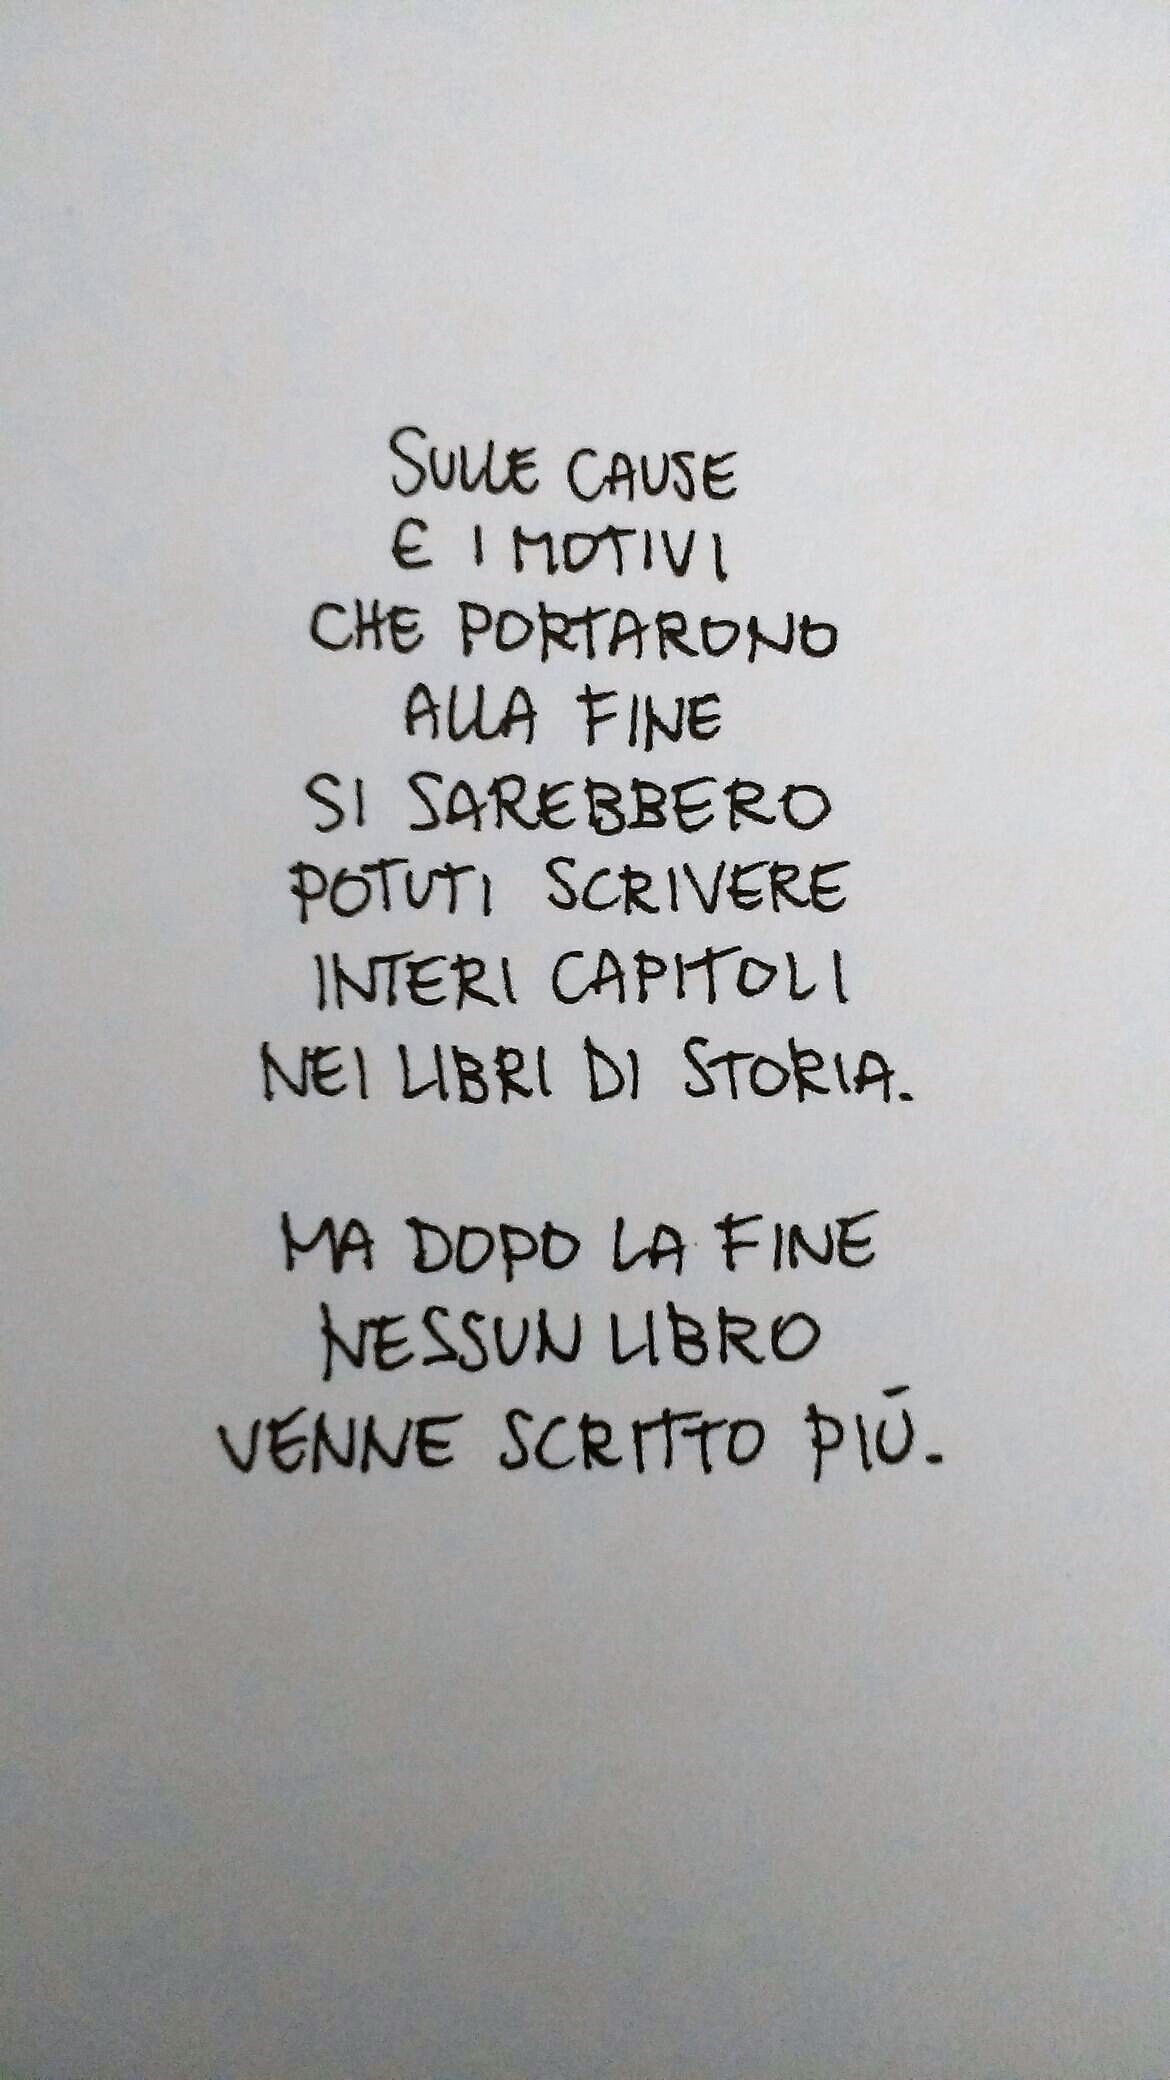 SULLE CAUSE
E I MOTIVI
CHE PORTARONO
ALLA FINE
SI SAREBBERO
POTUTI SCRIVERE
INTERI CAPITOLI
NEI LIBRI DI STORIA.
MA DOPO LA FINE
NESSUN LIBRO
VENNE SCRITTO PIÙ.